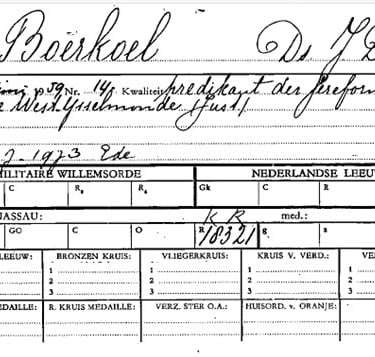 Boerkoel Ds. J D
juni 1959 Nr. 14, Kwaliteit predikant der Gereform
West-IJsselmonde (just)
-1973 Ede
MILITAIRE WILLEMSORDE NEDERLANDSE LEEU
C R₃ R₄ Gk C R
NASSAU: K R med.:
GO C O R 18321 g s
LEEUW: BRONZEN KRUIS: VLIEGERKRUIS: KRUIS V. VERD.: VE
1 1 1 1
2 2 2 2
3 3 3 3
EDAILLE: R. KRUIS MEDAILLE: VERZ. STER O.A.: HUISORD. v. ORANJE: